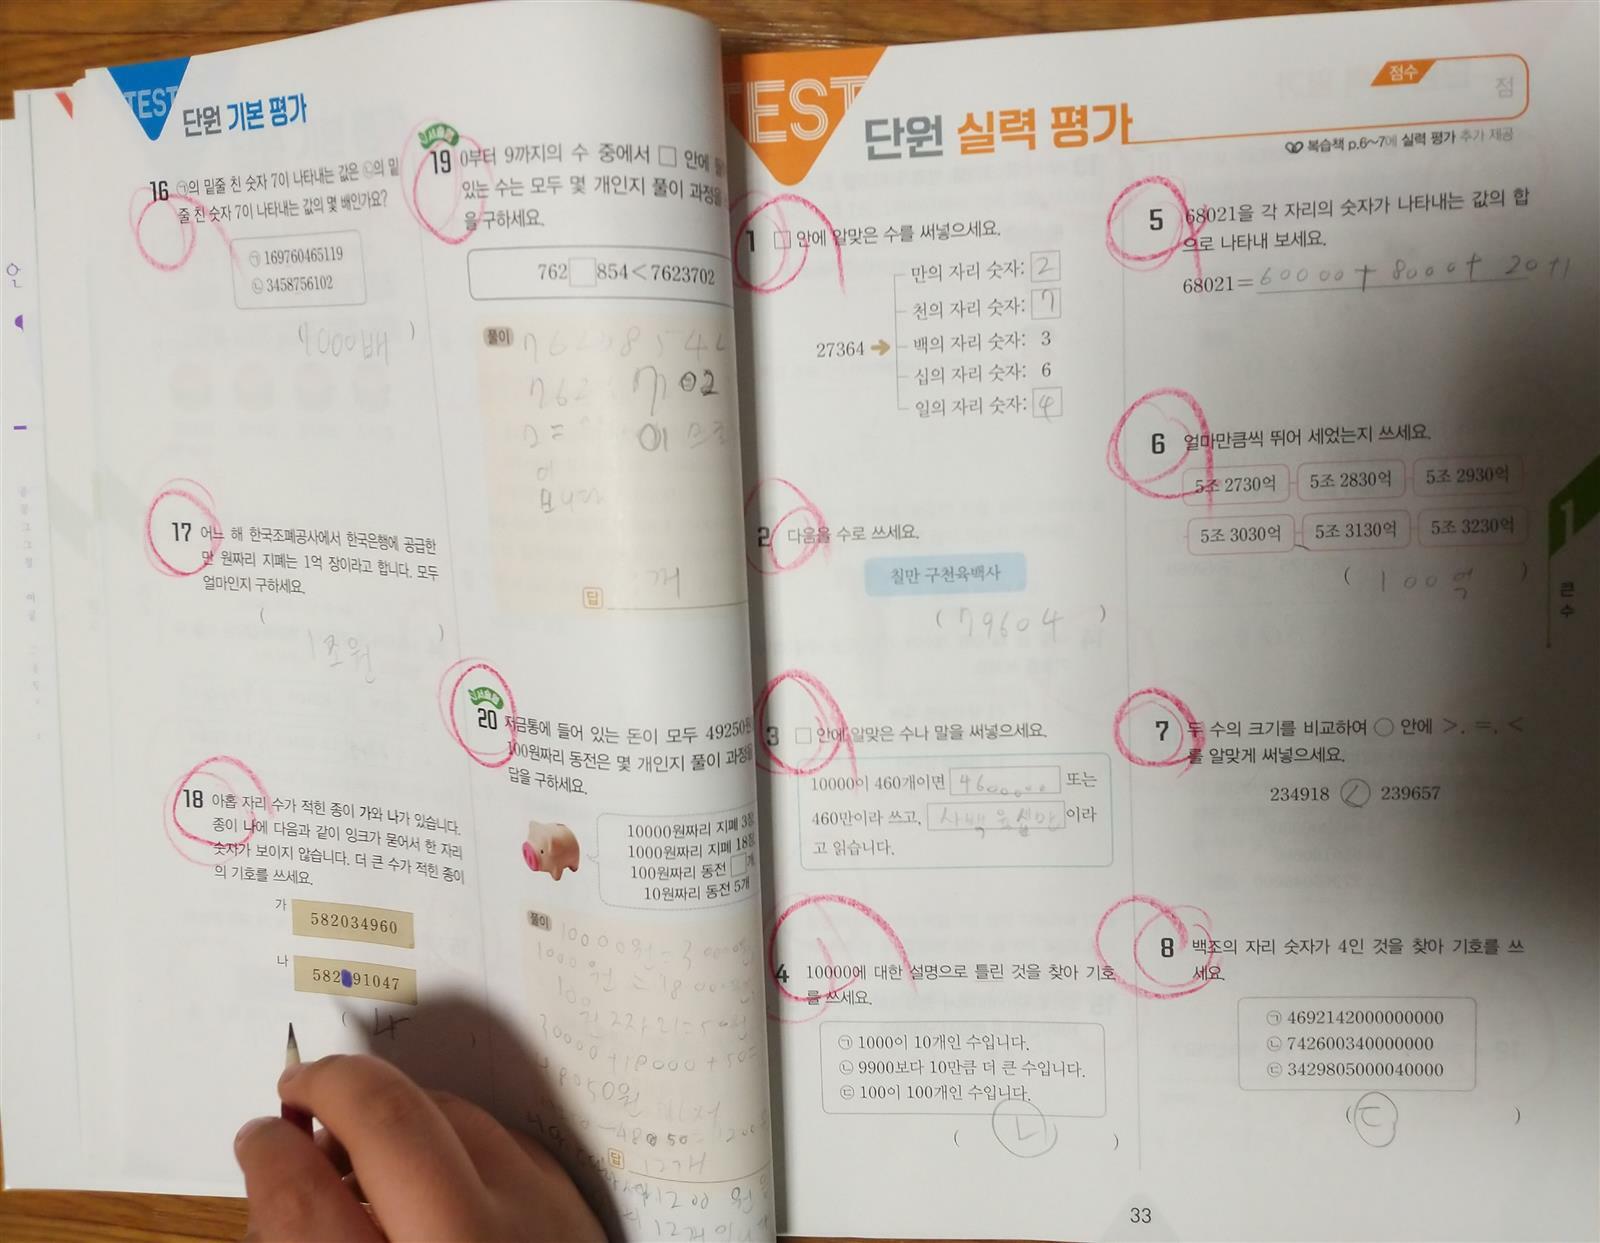 TEST 단원 기본 평가
16 ㉠의 밑줄 친 숫자 7이 나타내는 값은 ㉡의 밑
줄 친 숫자 7이 나타내는 값의 몇 배인가요?
㉠ 169760465119
㉡ 3458756102
( 1000배 )
17 어느 해 한국조폐공사에서 한국은행에 공급한
만 원짜리 지폐는 1억 장이라고 합니다. 모두
얼마인지 구하세요.
( 1조원 )
18 아홉 자리 수가 적힌 종이 가와 나가 있습니다.
종이 나에 다음과 같이 잉크가 묻어서 한 자리
숫자가 보이지 않습니다. 더 큰 수가 적힌 종이
의 기호를 쓰세요.
가
582034960
나
582 91047
( 나 )
서술형
19 0부터 9까지의 수 중에서 □ 안에
있는 수는 모두 몇 개인지 풀이 과정을
을 구하세요.
762□854<7623702
풀이
답 개
서술형
20 저금통에 들어 있는 돈이 모두 49250원
100원짜리 동전은 몇 개인지 풀이 과정을
답을 구하세요.
10000원짜리 지폐 3장
1000원짜리 지폐 18장
100원짜리 동전 □개
10원짜리 동전 5개
풀이
30000+18000+50=
답 12개
TEST 단원 실력 평가
점수
점
복습책 p.6~7에 실력 평가 추가 제공
1 □ 안에 알맞은 수를 써넣으세요.
만의 자리 숫자: 2
천의 자리 숫자: 7
27364 ➔ 백의 자리 숫자: 3
십의 자리 숫자: 6
일의 자리 숫자: 4
2 다음을 수로 쓰세요.
칠만 구천육백사
( 79604 )
3 □ 안에 알맞은 수나 말을 써넣으세요.
10000이 460개이면 4600000 또는
460만이라 쓰고, 사백육십만 이라
고 읽습니다.
4 10000에 대한 설명으로 틀린 것을 찾아 기호
를 쓰세요.
㉠ 1000이 10개인 수입니다.
㉡ 9900보다 10만큼 더 큰 수입니다.
㉢ 100이 100개인 수입니다.
( ㉡ )
5 68021을 각 자리의 숫자가 나타내는 값의 합
으로 나타내 보세요.
68021=60000+8000+20+1
6 얼마만큼씩 뛰어 세었는지 쓰세요.
5조 2730억 5조 2830억 5조 2930억
5조 3030억 5조 3130억 5조 3230억
( 100억 )
7 두 수의 크기를 비교하여 ○ 안에 >, =, <
를 알맞게 써넣으세요.
234918 < 239657
8 백조의 자리 숫자가 4인 것을 찾아 기호를 쓰
세요.
㉠ 4692142000000000
㉡ 742600340000000
㉢ 3429805000040000
( ㉢ )
1
큰 수
33